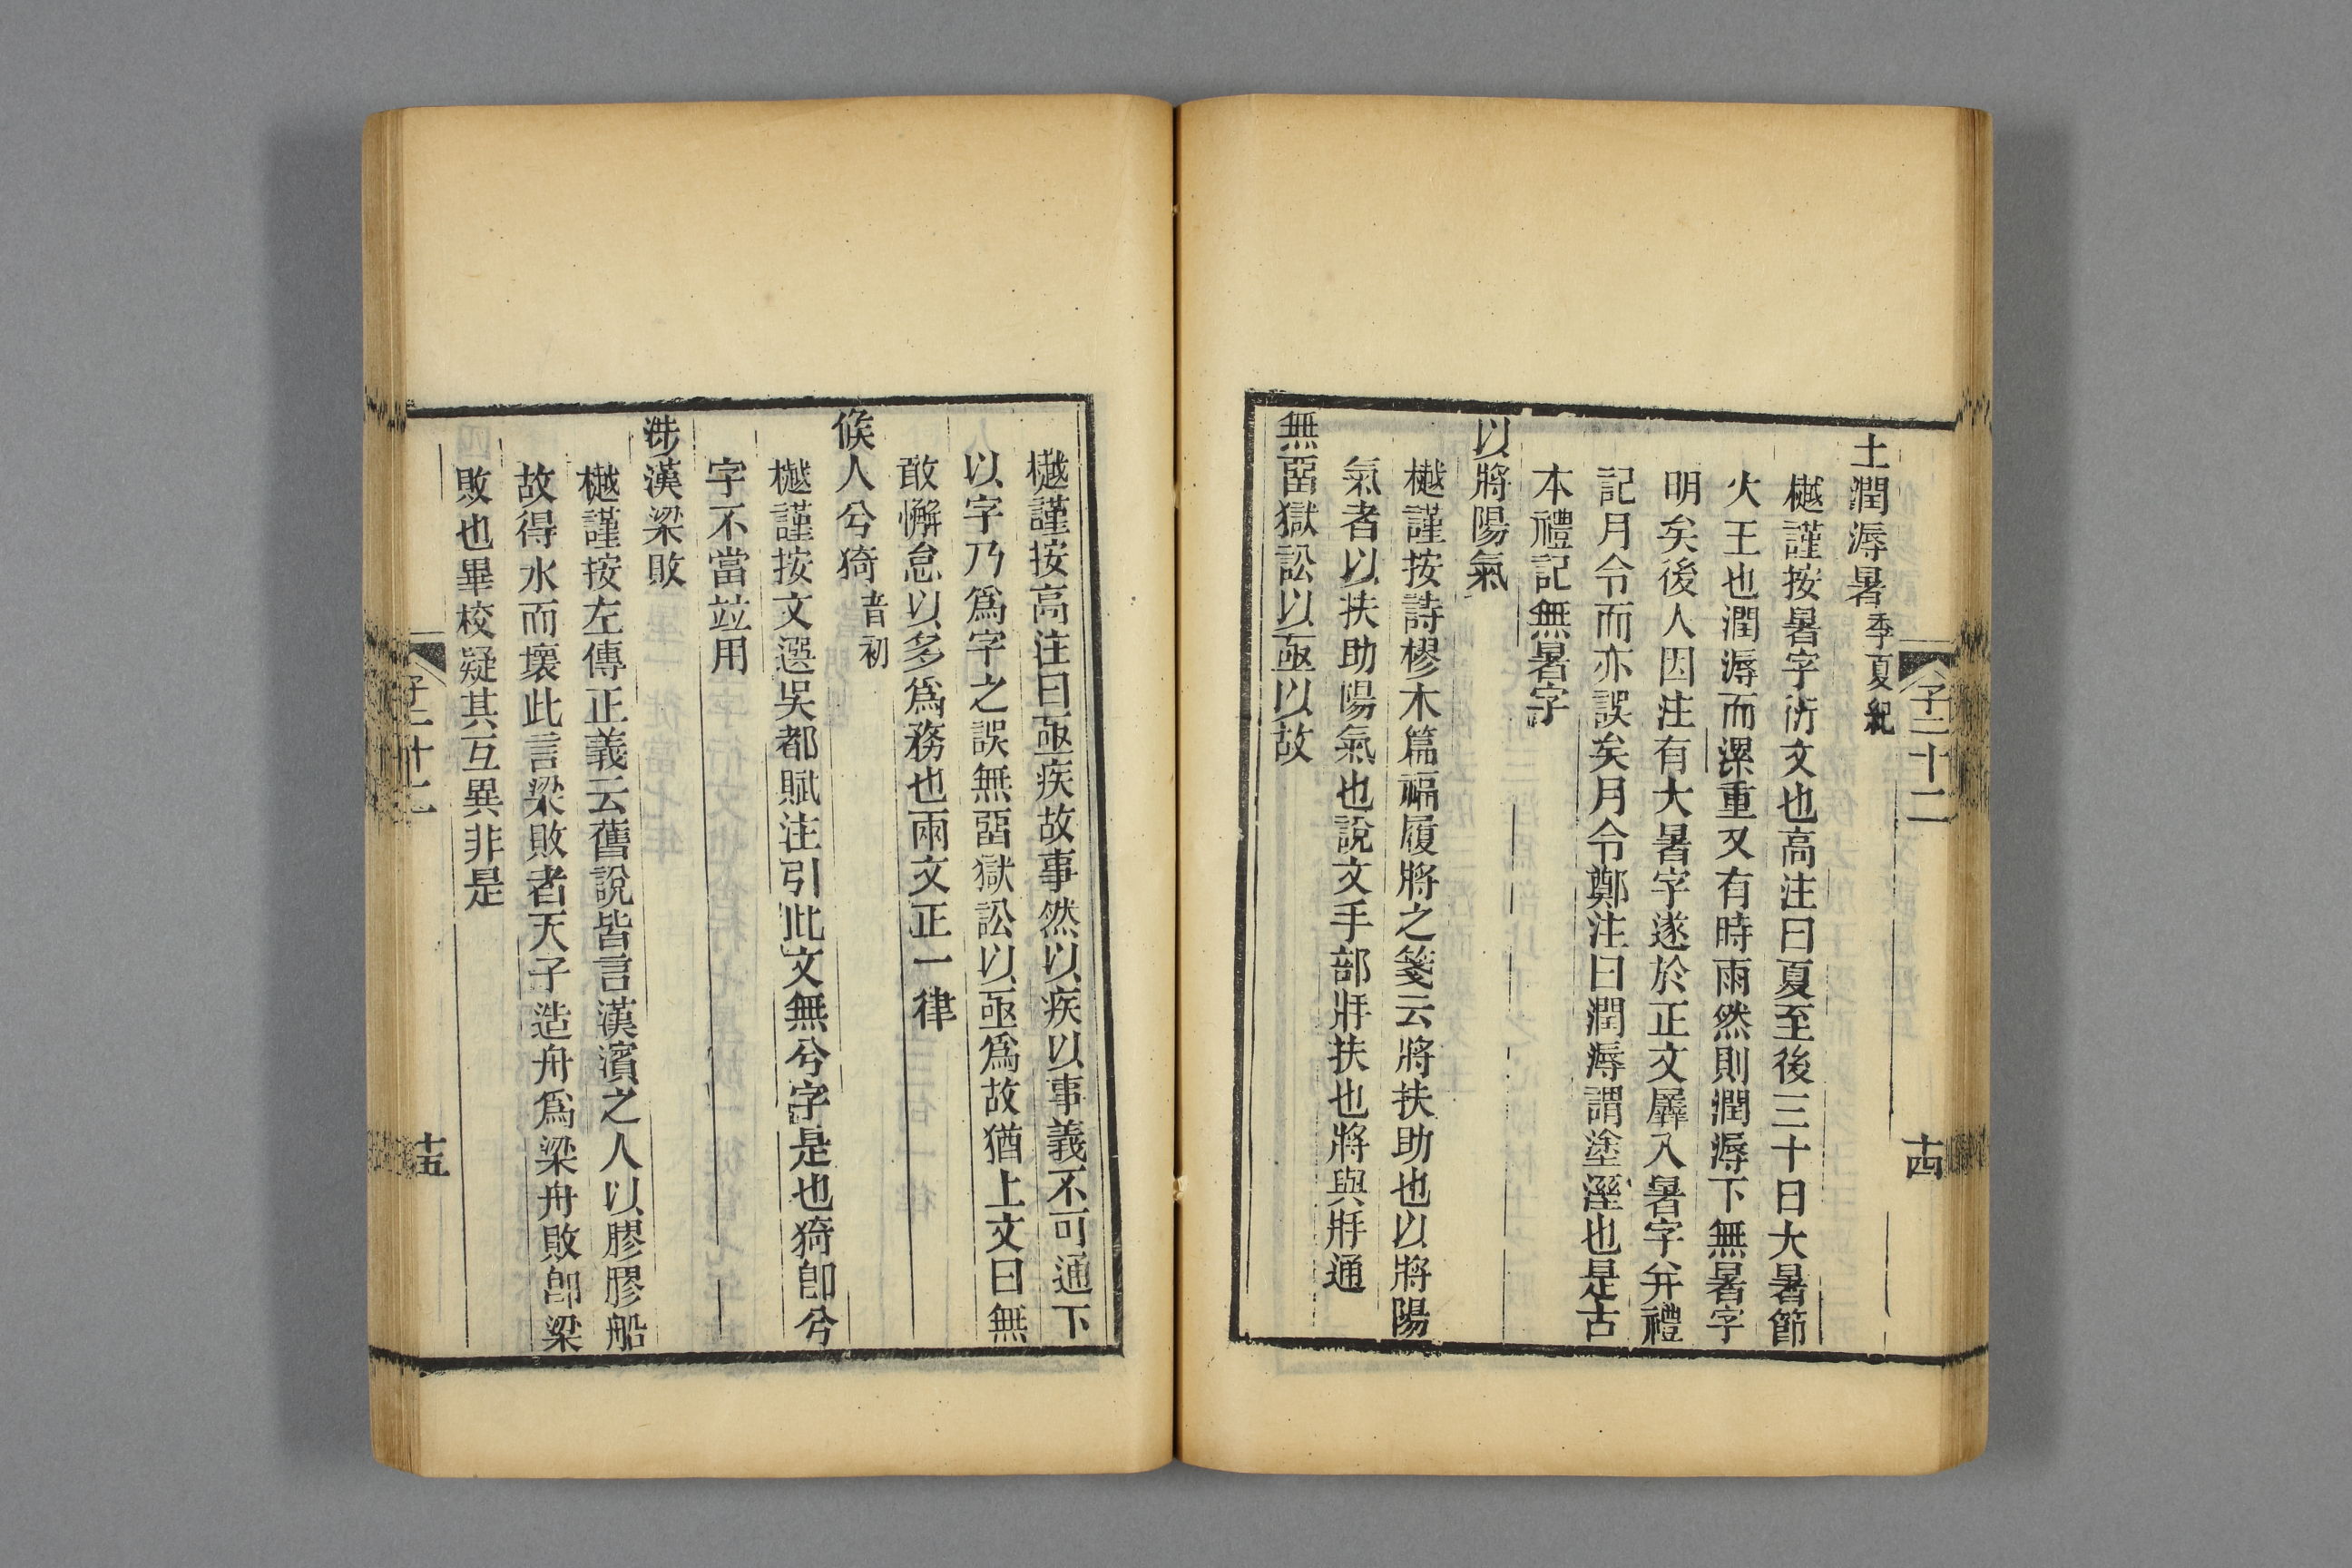 子二十二
十四
土潤溽暑季夏紀
樾謹按暑字衍文也高注曰夏至後三十日大暑節
火王也潤溽而漯重又有時雨然則潤溽下無暑字
明矣後人因注有大暑字遂於正文羼入暑字幷禮
記月令而亦誤矣月令鄭注曰潤溽謂塗溼也是古
本禮記無暑字
以將陽氣
樾謹按詩樛木篇福履將之箋云將扶助也以將陽
氣者以扶助陽氣也說文手部牂扶也將與牂通
無畱獄訟以亟以故
樾謹按高注曰亟疾故事然以疾以事義不可通下
以字乃爲字之誤無畱獄訟以亟爲故猶上文曰無
敢懈怠以多爲務也兩文正一律
候人兮猗音初
樾謹按文選吳都賦注引此文無兮字是也猗卽兮
字不當竝用
涉漢梁敗
樾謹按左傳正義云舊說皆言漢濱之人以膠膠船
故得水而壞此言梁敗者天子造舟爲梁舟敗卽梁
敗也畢校疑其互異非是
子二十二
十五